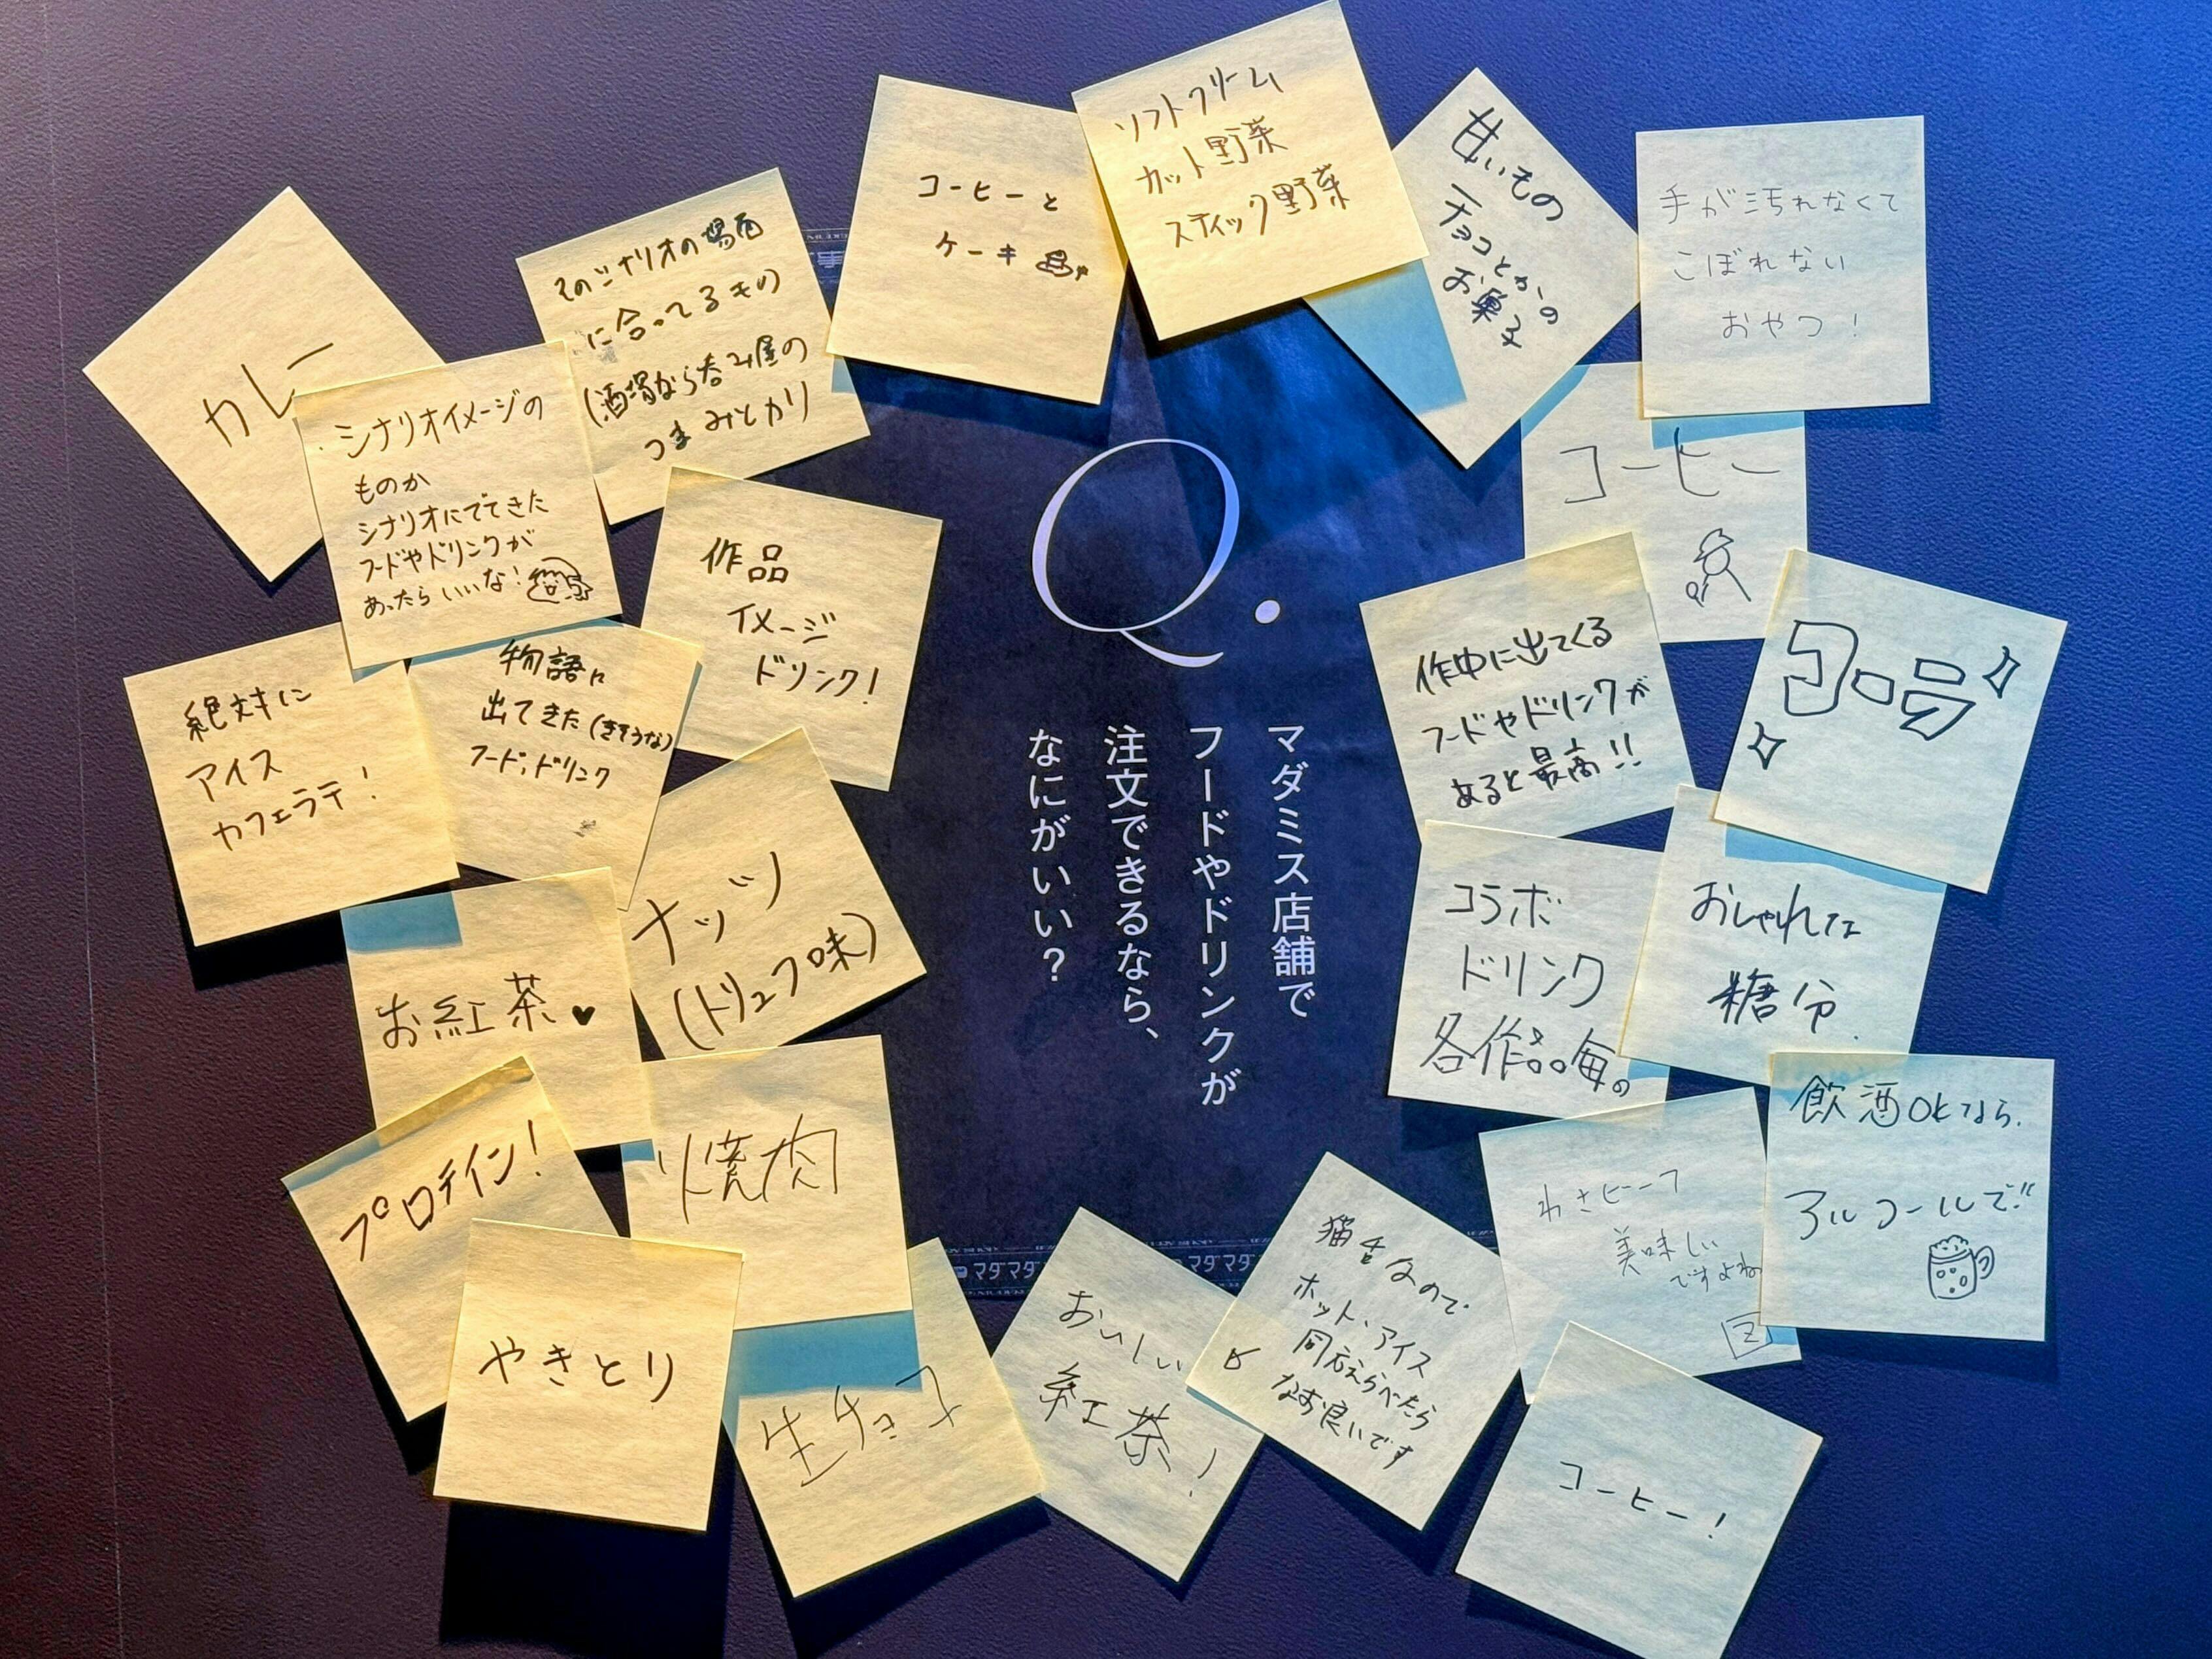 Q.
マダミス店舗で
フードやドリンクが
注文できるなら、
なにがいい？
カレー
そのシナリオの場面
に合ってるもの
(酒場なら呑み屋の
つまみとか)
コーヒーと
ケーキ
ソフトクリーム
カット野菜
スティック野菜
甘いもの
チョコとかの
お菓子
手が汚れなくて
こぼれない
おやつ！
シナリオイメージの
ものか
シナリオにでてきた
フードやドリンクが
あったらいいな！
作品
イメージ
ドリンク！
コーヒー
作中に出てくる
フードやドリンクが
あると最高!!
コーラ
絶対に
アイス
カフェラテ！
物語に
出てきた(きそうな)
フード、ドリンク
ナッツ
(トリュフ味)
コラボ
ドリンク
各作品毎の
おしゃれな
糖分
お紅茶♥
プロテイン！
焼肉
やきとり
生チョコ
おいしい
紅茶！
猫舌なので
ホット、アイス
同志えらべたら
なお良いです
わさビーフ
美味しい
ですよね
飲酒OKなら
アルコールで!!
コーヒー！
マダマダ
マダマダ